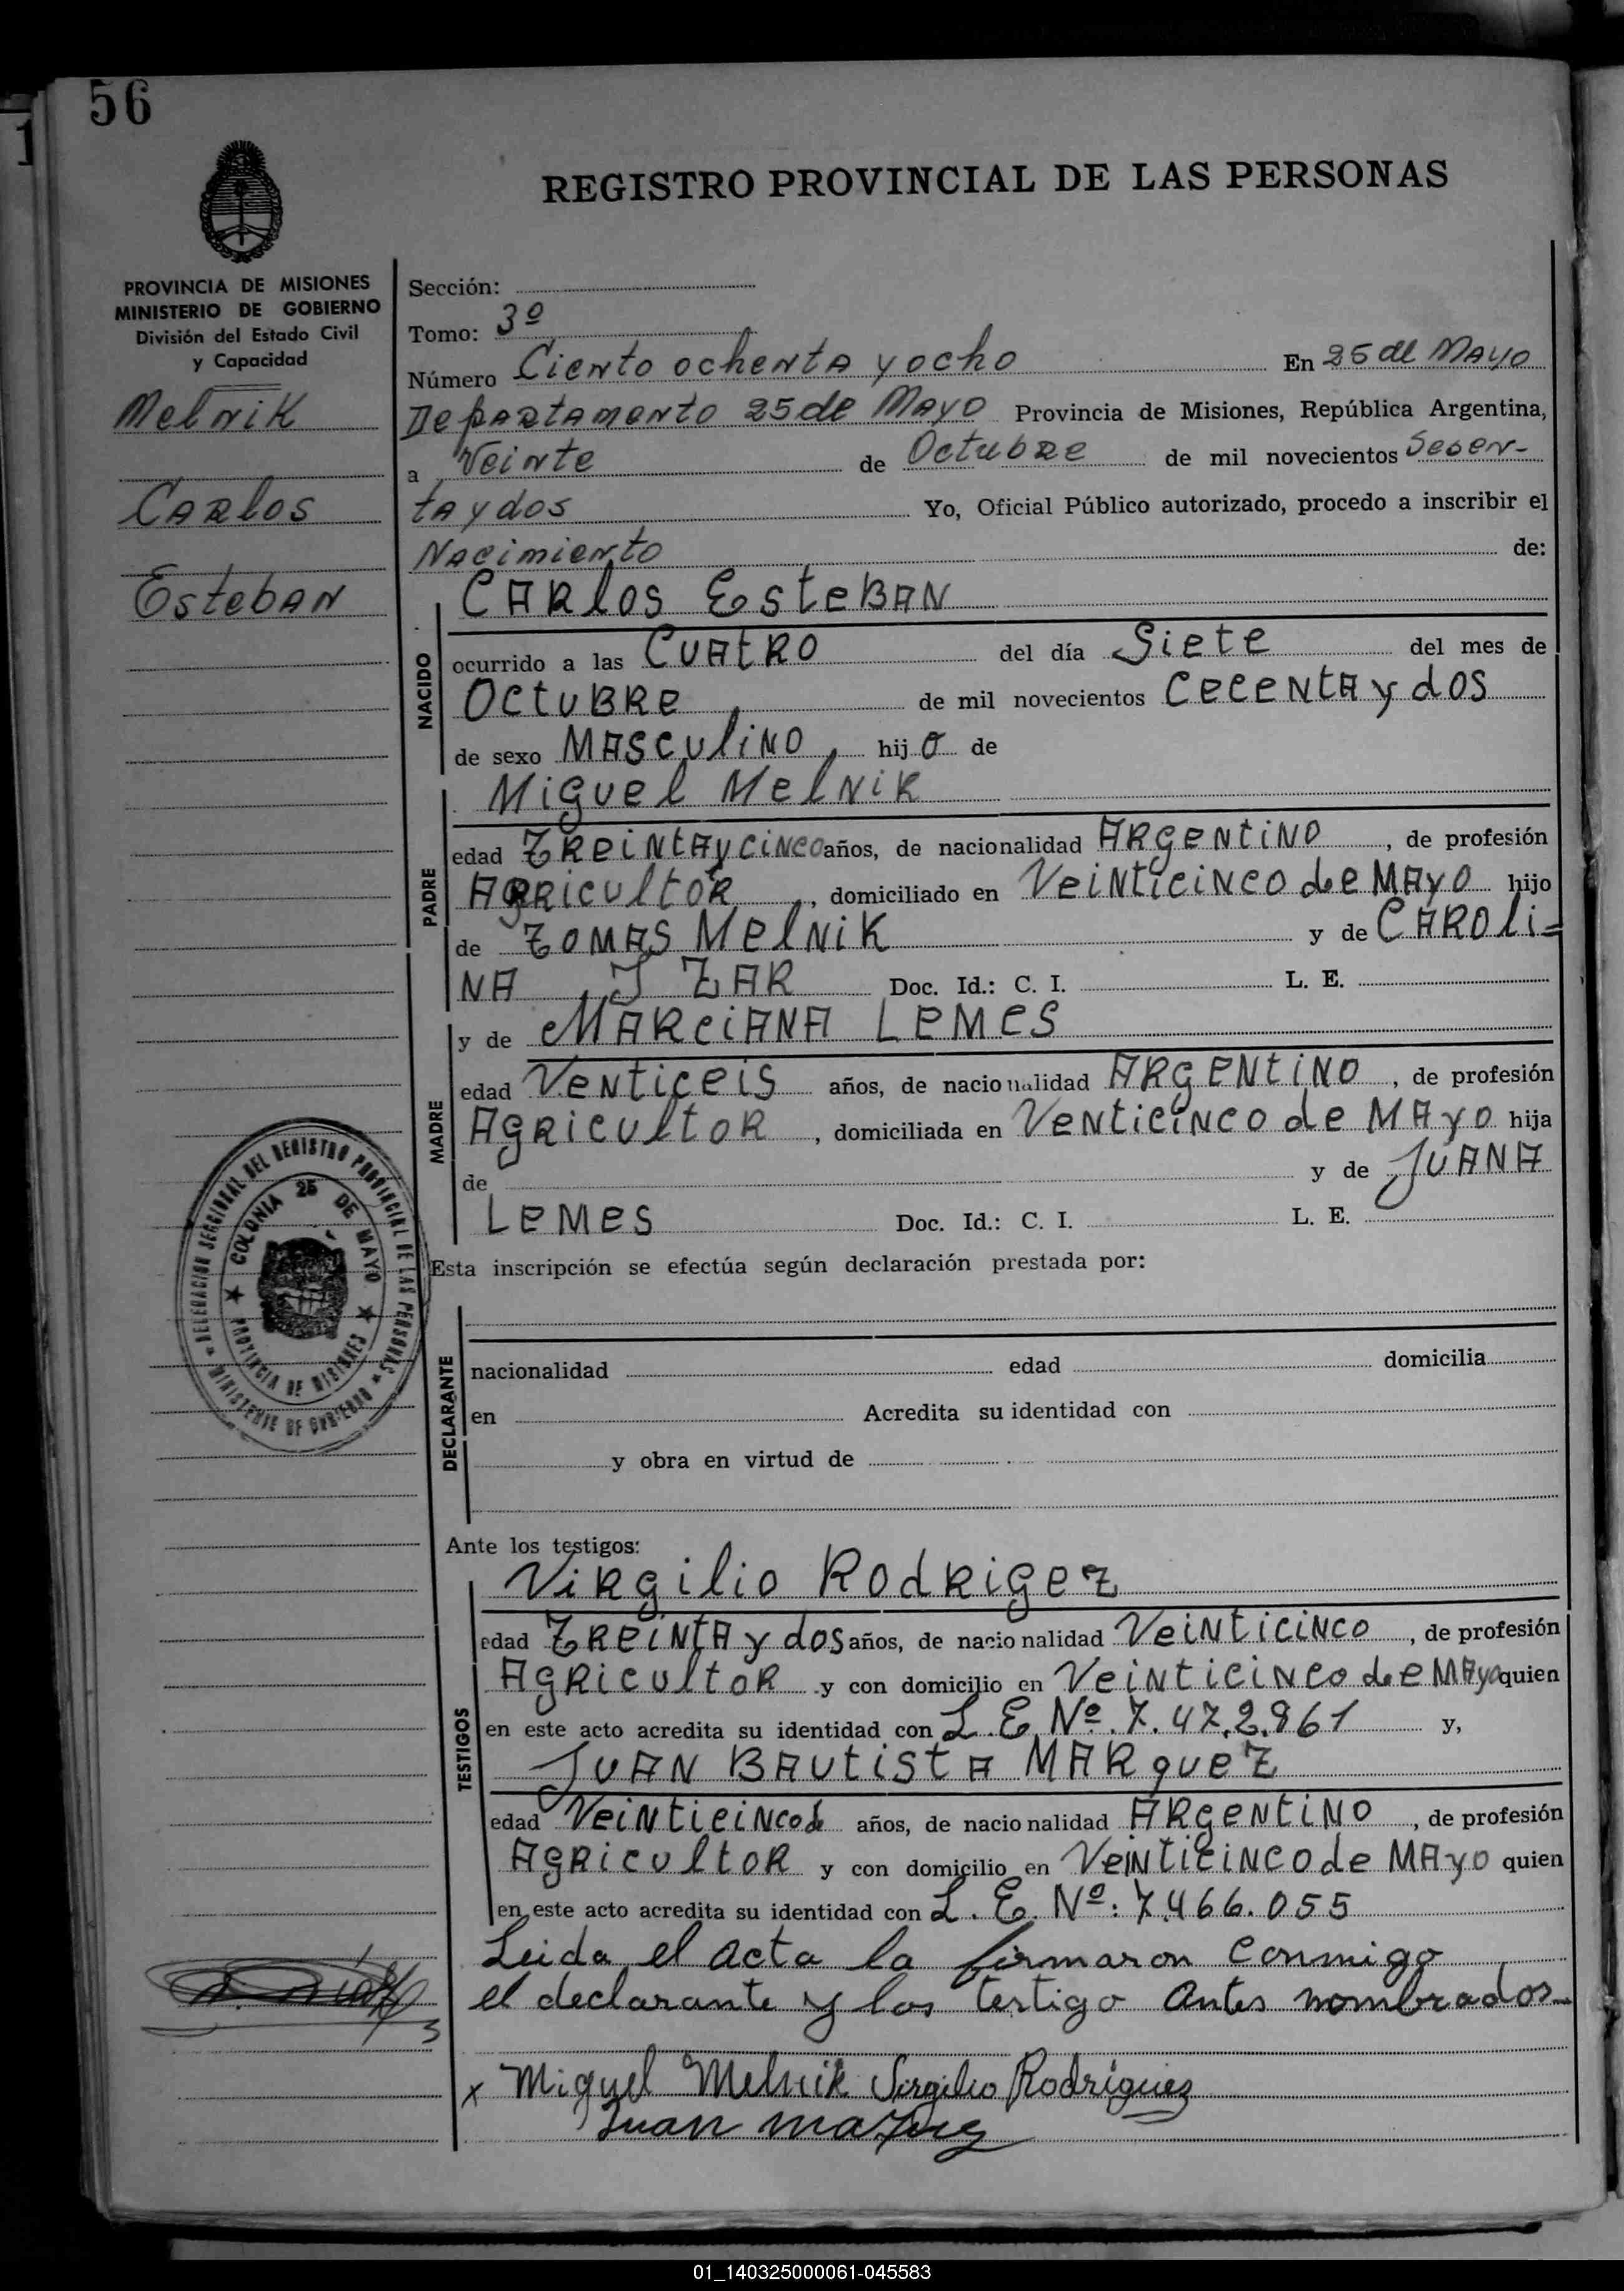 56
REGISTRO PROVINCIAL DE LAS PERSONAS
PROVINCIA DE MISIONES
MINISTERIO DE GOBIERNO
División del Estado Civil
y Capacidad
Melnik
Carlos
Esteban
Sección:
Tomo: 3º
Número Ciento ochenta y ocho En 25 de Mayo
Departamento 25 de Mayo Provincia de Misiones, República Argentina,
a Veinte de Octubre de mil novecientos Sesen-
ta y dos Yo, Oficial Público autorizado, procedo a inscribir el
Nacimiento de:
NACIDO
CARlos EsteBAN
ocurrido a las CUAtRO del día Siete del mes de
OctuBRe de mil novecientos CeceNtA y dos
de sexo MAScUliNO, hijo de
PADRE
Miguel MelNiK
edad TReiNtAyciNco años, de nacionalidad ARgeNtiNO, de profesión
AgRicultoR, domiciliado en VeiNticiNco de MAyo hijo
de TOMAS MelNiK y de CAROli=
NA I ZAR Doc. Id.: C. I. L. E.
MADRE
y de MARciANA LeMes
edad VeNticeis años, de nacionalidad ARgeNtiNO, de profesión
AgRicultoR, domiciliada en VeNticiNco de MAyo hija
de y de JUANA
LeMes Doc. Id.: C. I. L. E.
Esta inscripción se efectúa según declaración prestada por:
DECLARANTE
nacionalidad edad domicilia
en Acredita su identidad con
y obra en virtud de
DELEGACION SECCIONAL DEL REGISTRO PROVINCIAL DE LAS PERSONAS
MINISTERIO DE GOBIERNO
COLONIA 25 DE MAYO
PROVINCIA DE MISIONES
Ante los testigos:
TESTIGOS
ViRgilio RodRigez
edad TReiNtA y dos años, de nacionalidad VeiNticiNco, de profesión
AgRicultoR y con domicilio en VeiNticiNco de MAyo quien
en este acto acredita su identidad con L.E. Nº. 7.472.861 y,
JUAN BAUtistA MARqueZ
edad VeiNticiNco de años, de nacionalidad ARgeNtiNO, de profesión
AgRicultoR y con domicilio en VeiNticiNco de MAyo quien
en este acto acredita su identidad con L.E. Nº: 7.466.055
Leida el acta la firmaron conmigo
el declarante y los testigo antes nombrados
x Miguel Melnik Virgilio Rodríguez
Juan
01_140325000061-045583